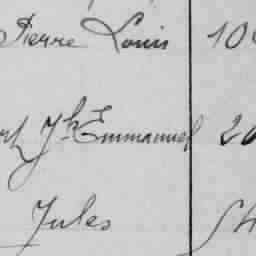 Pierre Louis 10
Jh Emmanuel 20
Jules